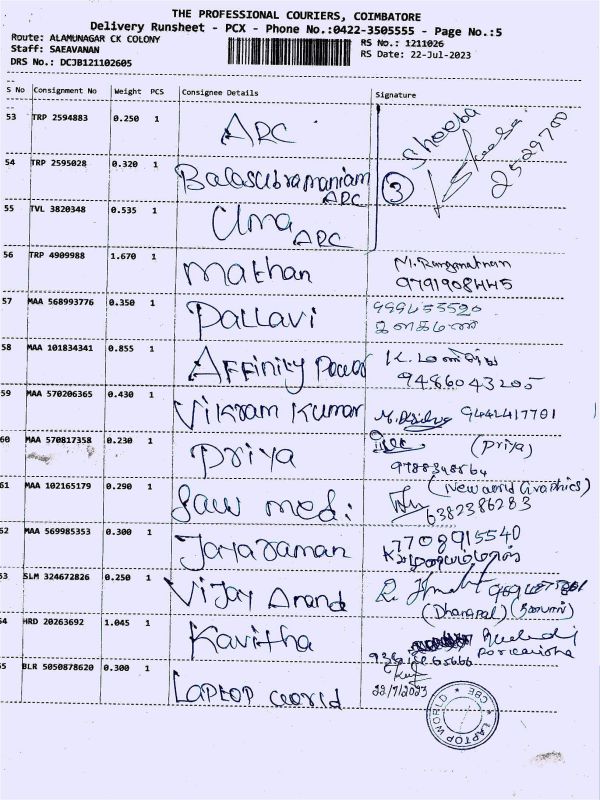 THE PROFESSIONAL COURIERS, COIMBATORE
Delivery Runsheet - PCX - Phone No.:0422-3505555 - Page No.:5
Route: ALAMUNAGAR CK COLONY
RS No.: 1211026
Staff: SAEAVANAN
RS Date: 22-Jul-2023
DRS No.: DCJB121102605
S No Consignment No Weight PCS Consignee Details Signature
53 TRP 2594883 0.250 1 ARC
Shooba
2529700
54 TRP 2595028 0.320 1 Balasubramaniam
ARC
3
55 TVL 3820348 0.535 1 Uma
ARC
56 TRP 4909988 1.670 1 Mathan
9791908445
57 MAA 568993776 0.350 1 Pallavi
58 MAA 101834341 0.855 1 Affinity Power
9486043205
59 MAA 570206365 0.430 1 Vikram Kumar
9442417701
60 MAA 570817358 0.230 1 Priya
(Priya)
9788348864
61 MAA 102165179 0.290 1
(New world Graphics)
6382386283
62 MAA 569985353 0.300 1 Jayaraman
7708915540
53 SLM 324672826 0.250 1 Vijay Anand
(Dhanapal)
54 HRD 20263692 1.045 1 Kavitha
55 BLR 5050878620 0.300 1 Laptop world
22/7/2023
LAPTOP WORLD
CBE